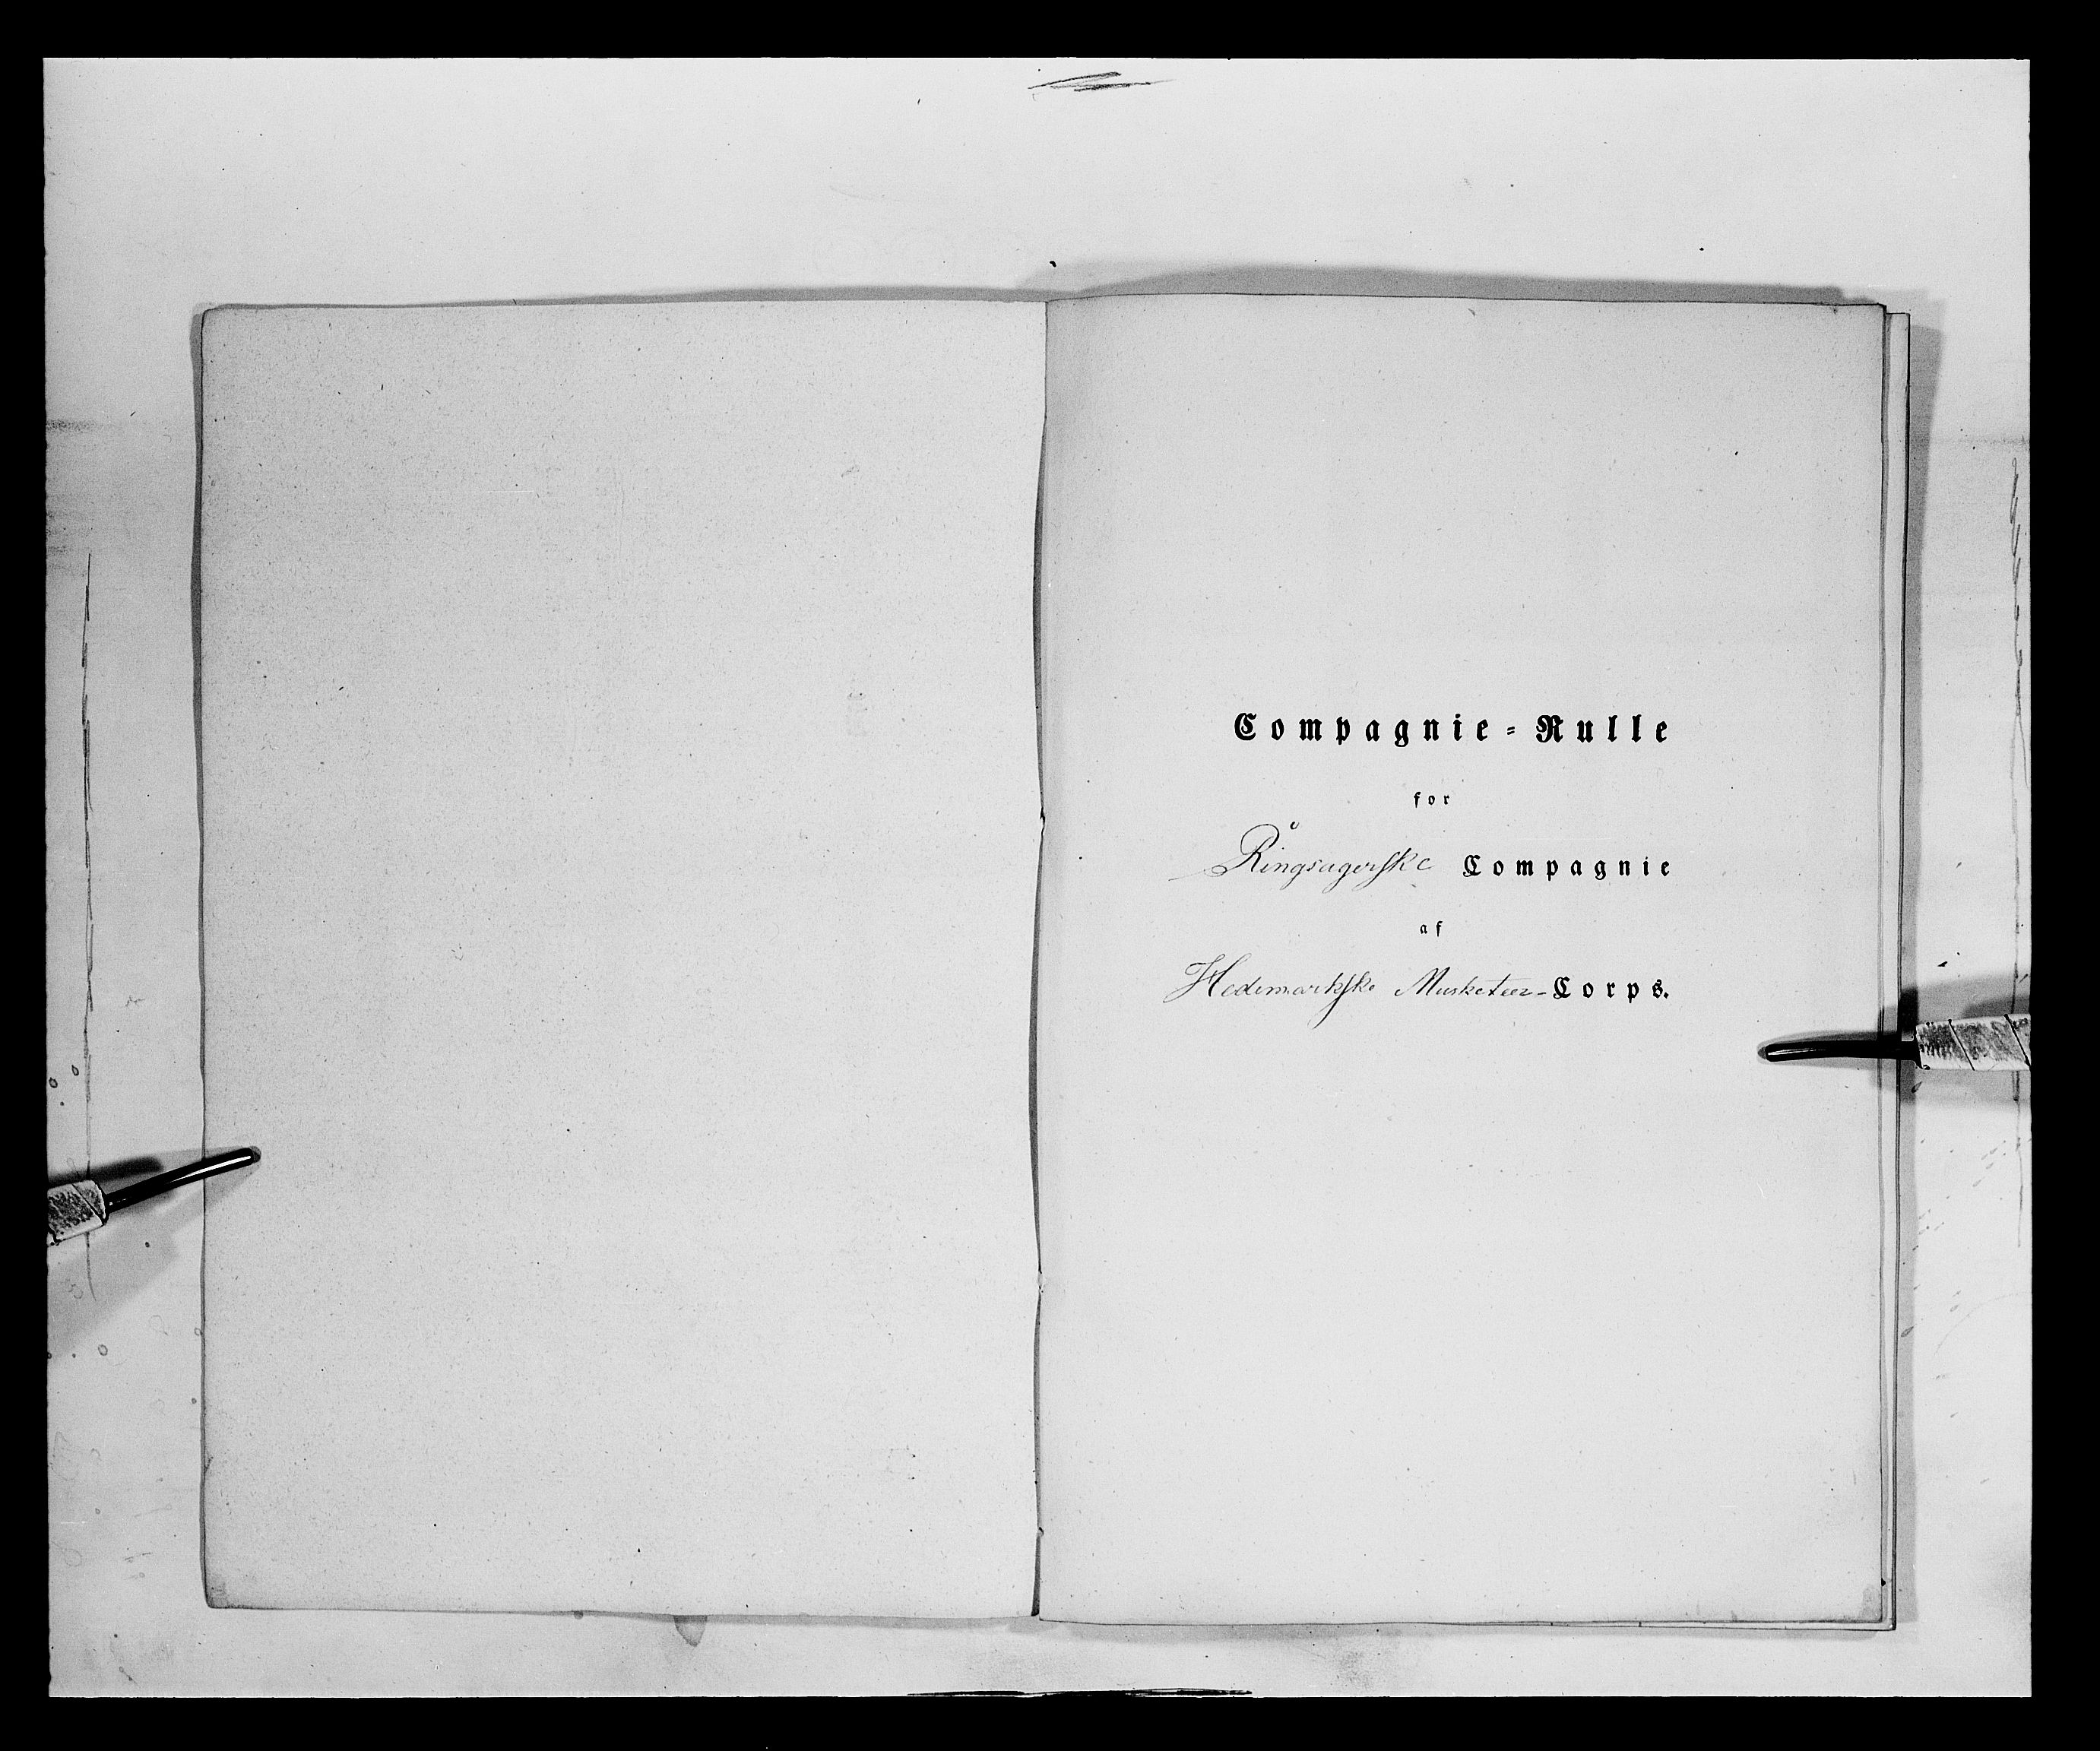 Compagnie=Rulle
for
Ringsagerske Compagnie
af
Hedemarkske Musketeer-Corps.